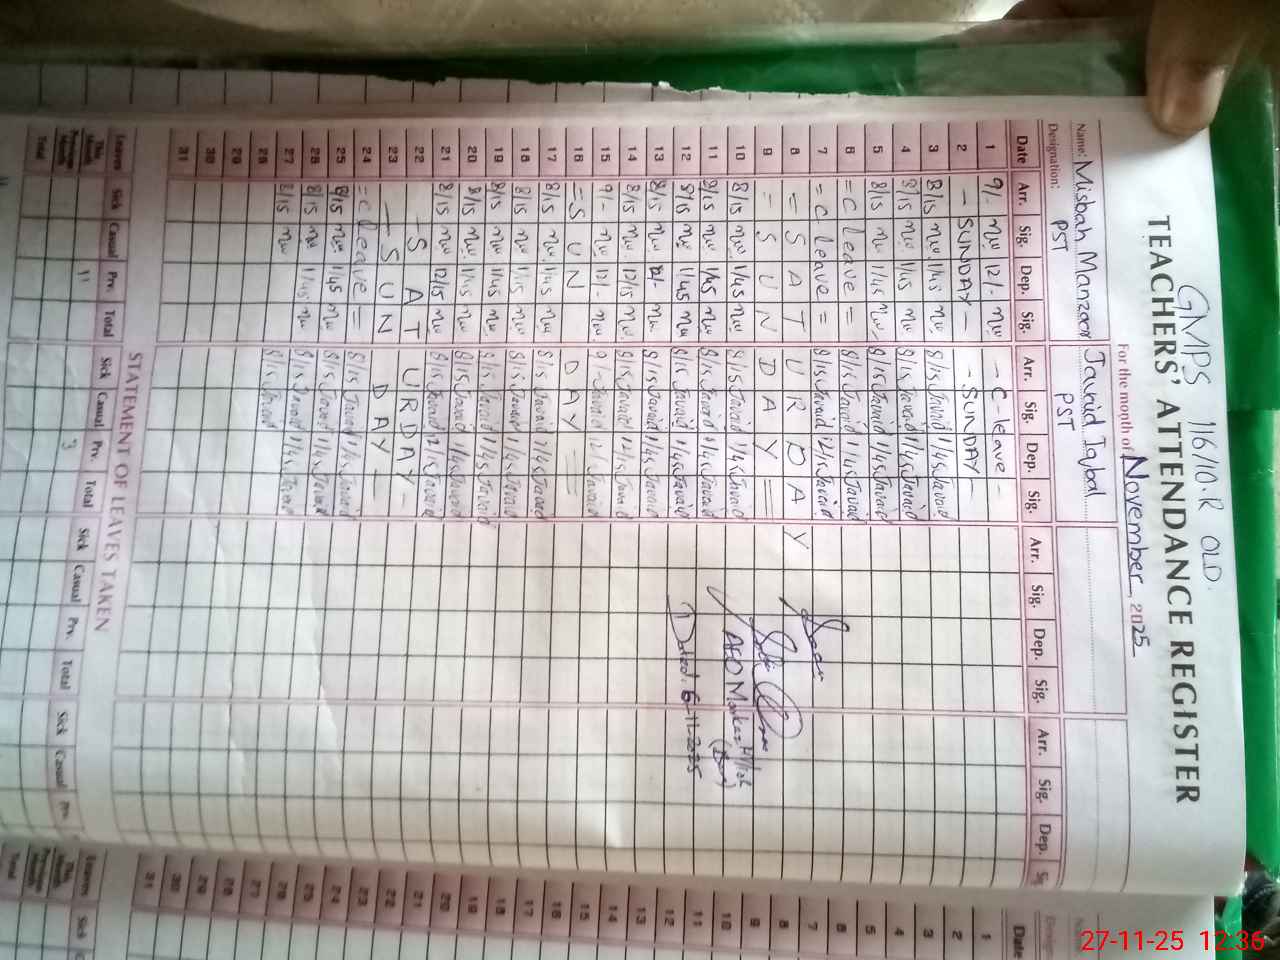 GMPS 116/10.R OLD.
TEACHERS' ATTENDANCE REGISTER
For the month of November 2025
Name: Misbah Manzoor Javaid Iqbal
Designation: PST PST
Date Arr. Sig. Dep. Sig. Arr. Sig. Dep. Sig. Arr. Sig. Dep. Sig. Arr. Sig. Dep.
1 9/- 12/- - C-leave -
2 - SUNDAY - - SUNDAY -
3 8/15 1/45 8/15 Javaid 1/45 Javaid
4 8/15 1/45 8/15 Javaid 1/45 Javaid
5 8/15 1/45 8/15 Javaid 1/45 Javaid
6 = C leave = 8/15 Javaid 1/45 Javaid
7 = C leave = 8/15 Javaid 12/15 Javaid
8 = S A T U R D A Y
9 = S U N D A Y =
10 8/15 1/45 8/15 Javaid 1/45 Javaid
11 8/15 1/45 8/15 Javaid 1/45 Javaid
12 8/15 1/45 8/15 Javaid 1/45 Javaid
13 8/15 8/15 Javaid 1/45 Javaid
14 8/15 12/15 8/15 Javaid 12/15 Javaid
15 9/- 12/- 9/- Javaid 12/- Javaid
16 = S U N D A Y =
17 8/15 1/45 8/15 Javaid 1/45 Javaid
18 8/15 1/45 8/15 Javaid 1/45 Javaid
19 8/15 1/45 8/15 Javaid 1/45 Javaid
20 8/15 1/45 8/15 Javaid 1/45 Javaid
21 8/15 12/15 8/15 Javaid 12/15 Javaid
22 - S A T U R D A Y -
23 - S U N D A Y -
24 = C leave = 8/15 Javaid 1/45 Javaid
25 8/15 1/45 8/15 Javaid 1/45 Javaid
26 8/15 1/45 8/15 Javaid 1/45 Javaid
27 8/15 8/15 Javaid
28
29
30
31
AEO
Dated. 6-11-2025
STATEMENT OF LEAVES TAKEN
Leaves Sick Casual Prv. Total Sick Casual Prv. Total Sick Casual Prv. Total Sick Casual Prv.
This Month 11 3
Previous Month
Total
Date
1
2
3
4
5
6
7
8
9
10
11
12
13
14
15
16
17
18
19
20
21
22
23
24
25
26
27
28
29
30
31
Leaves Sick
This Month
Previous Month
Total
27-11-25 12:36